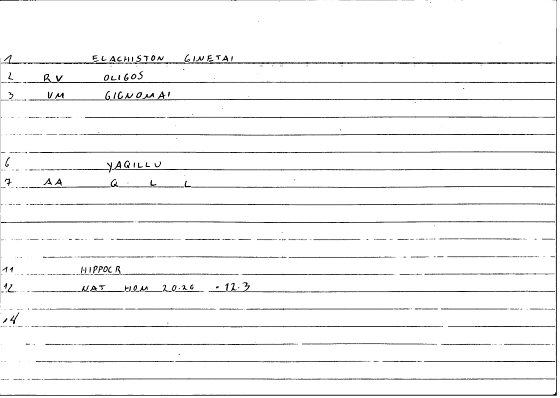 1 ELACHISTON GINETAI
2 RV OLIGOS
3 VM GIGNOMAI
6 YAQILLU
7 AA Q L L
11 HIPPOCR
12 NAT HOM 20.26 - 12.3
14